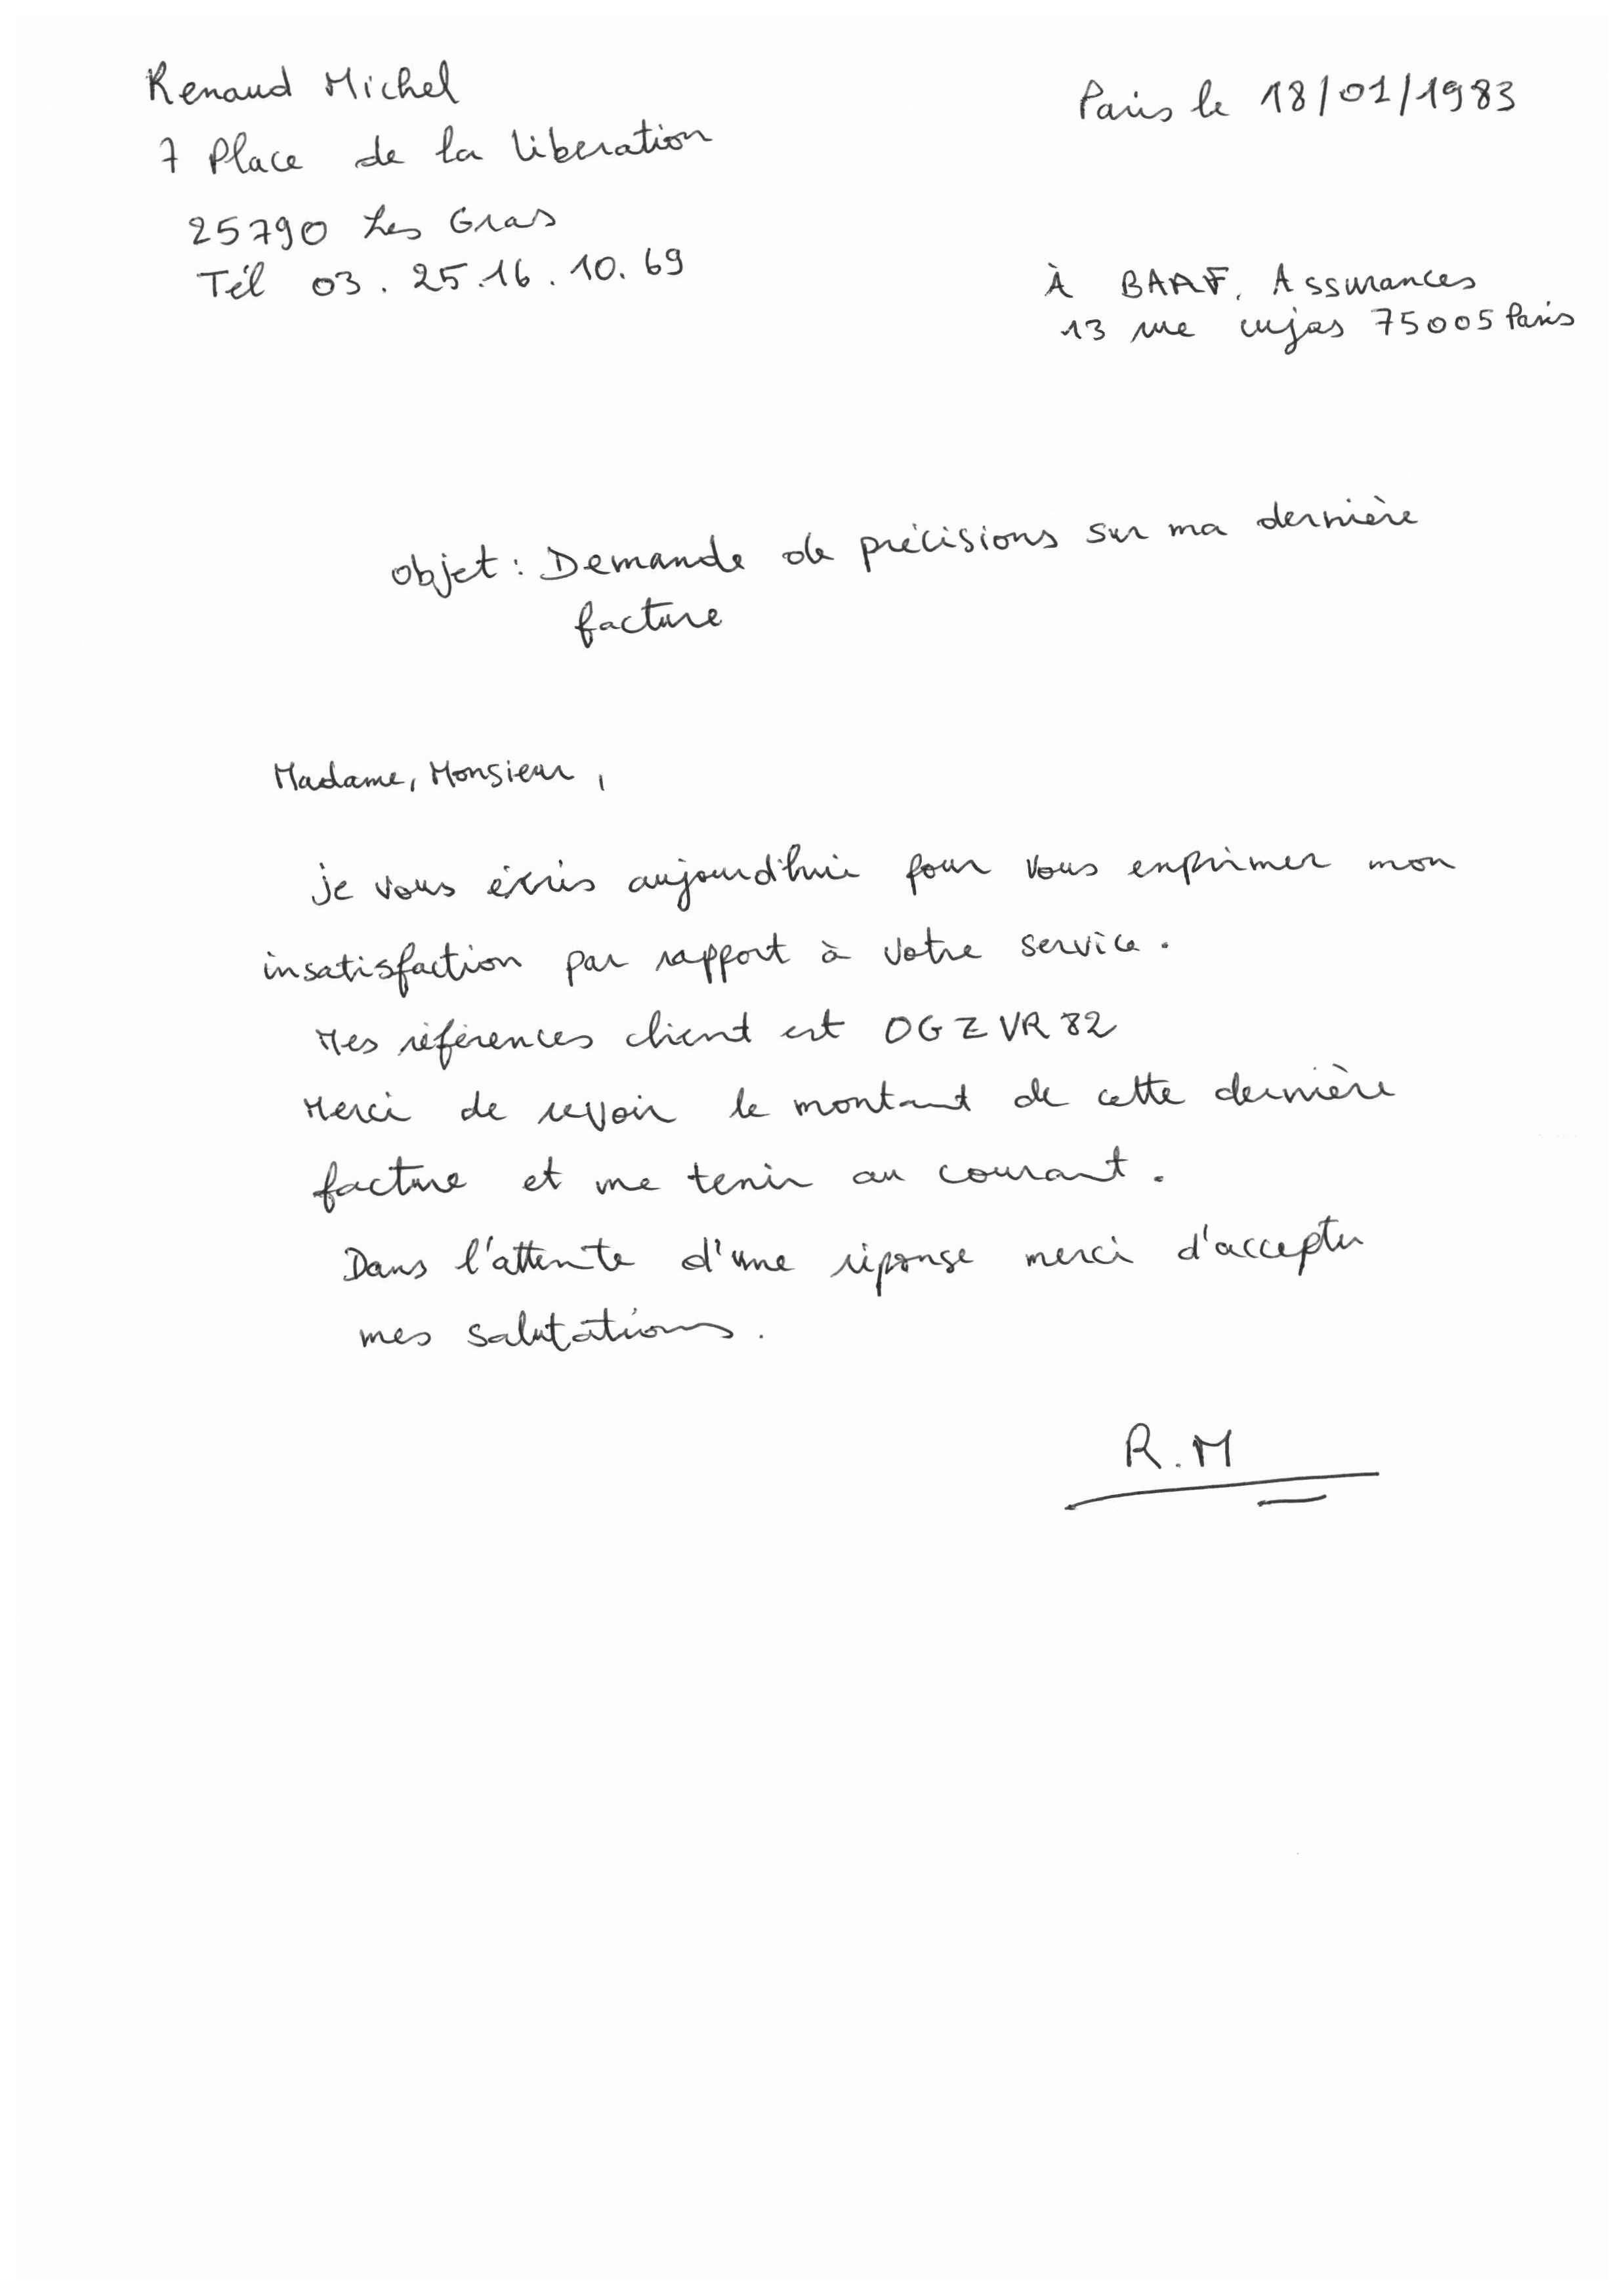 Renaud Michel
7 Place de la libération
25790 Les Gras
Tél 03.25.16.10.69
Paris le 18/01/1983
À BAAF. Assurances
13 rue cujas 75005 Paris
objet : Demande de précisions sur ma dernière
facture
Madame, Monsieur,
je vous écris aujourd'hui pour vous exprimer mon
insatisfaction par rapport à votre service.
Mes références client est OGZVR82
Merci de revoir le montant de cette dernière
facture et me tenir au courant.
Dans l'attente d'une réponse merci d'accepter
mes salutations.
R.M